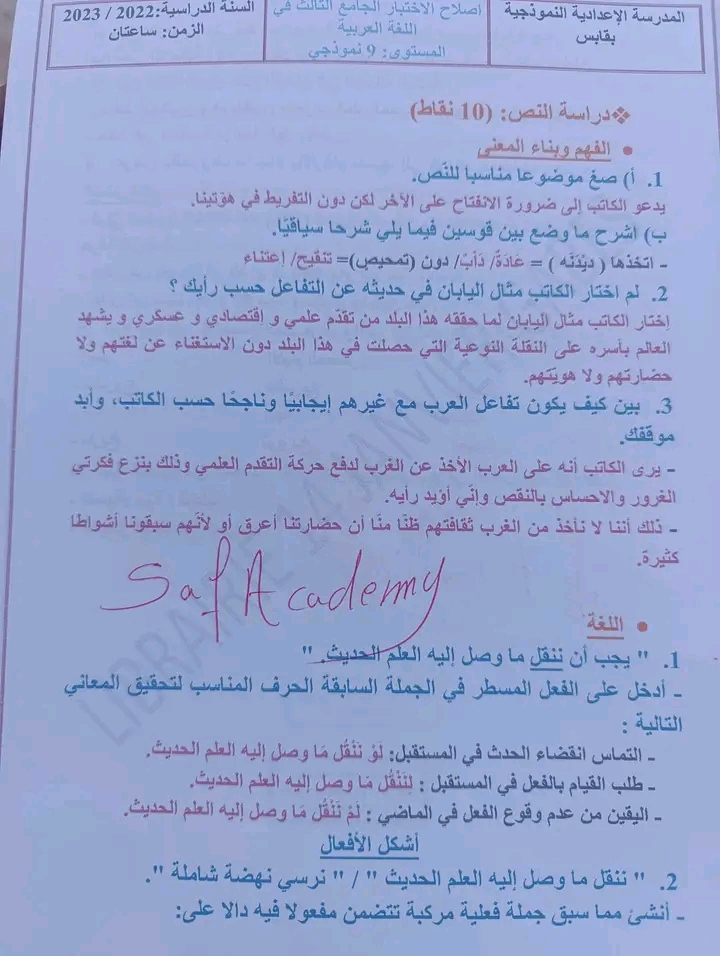 المدرسة الإعدادية النموذجية بقابس
اصلاح الاختبار الجامع الثالث في اللغة العربية
المستوى: 9 نموذجي
السنة الدراسية:2022 / 2023
الزمن: ساعتان
❖دراسة النص: (10 نقاط)
• الفهم وبناء المعنى
1. أ) صغ موضوعا مناسبا للنّص.
يدعو الكاتب إلى ضرورة الانفتاح على الآخر لكن دون التفريط في هوّتينا.
ب) اشرح ما وضع بين قوسين فيما يلي شرحا سياقيّا.
- اتخذها ( ديْدَنَه ) = عَادَةً/ دَأبَ/ دون (تمحيص)= تنقيح/ إعتناء
2. لم اختار الكاتب مثال اليابان في حديثه عن التفاعل حسب رأيك ؟
إختار الكاتب مثال اليابان لما حققه هذا البلد من تقدّم علمي و إقتصادي و عسكري و يشهد
العالم بأسره على النقلة النوعية التي حصلت في هذا البلد دون الاستغناء عن لغتهم ولا
حضارتهم ولا هويّتهم.
3. بين كيف يكون تفاعل العرب مع غيرهم إيجابيّا وناجحًا حسب الكاتب، وأبد
موقفك.
- يرى الكاتب أنه على العرب الأخذ عن الغرب لدفع حركة التقدم العلمي وذلك بنزع فكرتي
الغرور والاحساس بالنقص وإنّي أؤيد رأيه.
- ذلك أننا لا نأخذ من الغرب ثقافتهم ظنّا منّا أن حضارتنا أعرق أو لأنّهم سبقونا أشواطا
كثيرة.
Saf Academy
LIBRAIRIE 14 JANVIER
• اللغة
1. " يجب أن ننقل ما وصل إليه العلم الحديث. "
- أدخل على الفعل المسطر في الجملة السابقة الحرف المناسب لتحقيق المعاني
التالية :
- التماس انقضاء الحدث في المستقبل: لَوْ نَنْقُل مَا وصل إليه العلم الحديث.
- طلب القيام بالفعل في المستقبل : لِنَنْقُل مَا وصل إليه العلم الحديث.
- اليقين من عدم وقوع الفعل في الماضي : لَمْ نَنْقُلْ مَا وصل إليه العلم الحديث.
أشكل الأفعال
2. " ننقل ما وصل إليه العلم الحديث " / " نرسي نهضة شاملة ".
- أنشئ مما سبق جملة فعلية مركبة تتضمن مفعولا فيه دالا على: